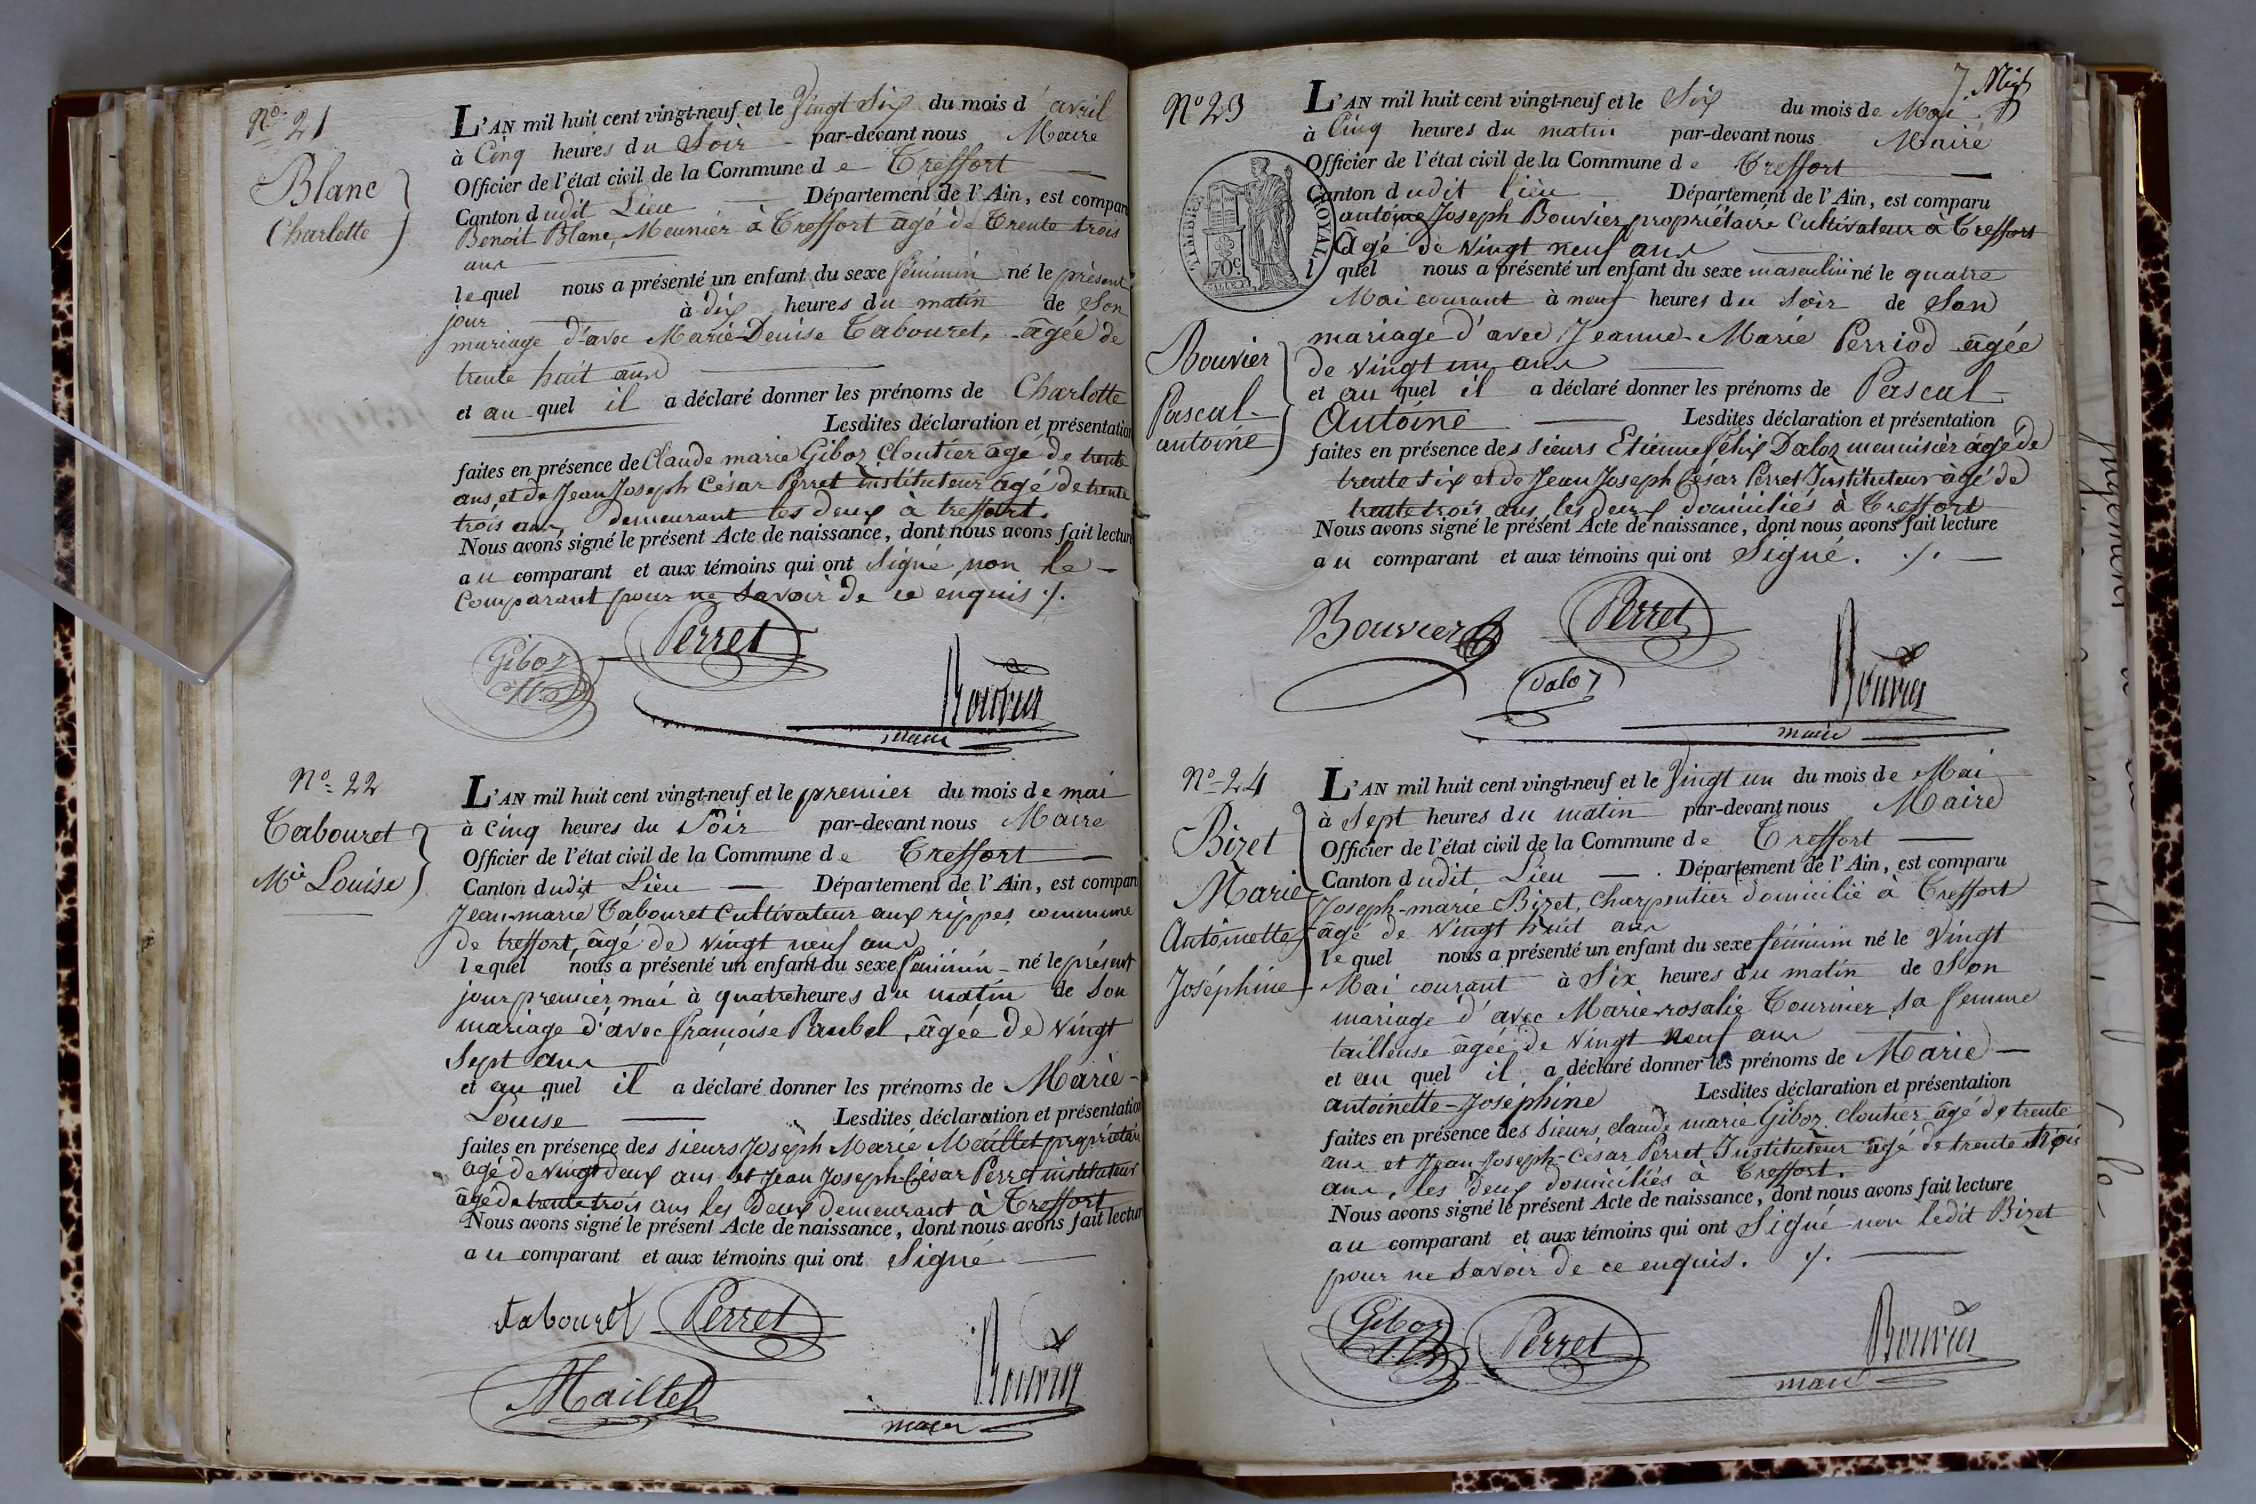 No 21
Blanc
Charlotte
L'AN mil huit cent vingt-neuf et le Vingt Six du mois d'avril
à Cinq heures du Soir par-devant nous Maire
Officier de l'état civil de la Commune de Treffort
Canton dudit Lieu Département de l'Ain, est comparu
Benoit Blanc, Meunier à Treffort agé de Trente trois
ans
lequel nous a présenté un enfant du sexe féminin né le présent
jour à dix heures du matin de Son
mariage d'avec Marie Denise Tabouret, âgée de
trente huit ans
et au quel il a déclaré donner les prénoms de Charlotte
Lesdites déclaration et présentation
faites en présence de Claude marie Giboz Cloutier âgé de trente
ans, et de Jean Joseph César Perret instituteur âgé de trente
trois ans, demeurant les deux à treffort.
Nous avons signé le présent Acte de naissance, dont nous avons fait lecture
au comparant et aux témoins qui ont Signé non le
Comparant pour ne Savoir de ce enquis ./.
Giboz
Perret
Bouvier
maire
No 22
Tabouret
Mie Louise
L'AN mil huit cent vingt-neuf et le premier du mois de mai
à Cinq heures du Soir par-devant nous Maire
Officier de l'état civil de la Commune de Treffort
Canton dudit Lieu Département de l'Ain, est comparu
Jean-marie Tabouret Cultivateur aux rippes commune
de treffort, âgé de vingt neuf ans
lequel nous a présenté un enfant du sexe féminin né le présent
jour premier mai à quatre heures du matin de Son
mariage d'avec françoise Paubel, âgée de vingt
Sept ans
et au quel il a déclaré donner les prénoms de Marie
Louise Lesdites déclaration et présentation
faites en présence des sieurs Joseph Marie Maillet propriétaire
agé de vingt deux ans et Jean Joseph César Perret instituteur
âgé de trente trois ans les Deux demeurant à Treffort
Nous avons signé le présent Acte de naissance, dont nous avons fait lecture
au comparant et aux témoins qui ont Signé
tabouret
Perret
Maillet
Bouvier
maire
7
No 23
Bouvier
Pascal
antoine
ROYAL
70c
L'AN mil huit cent vingt-neuf et le Six du mois de Mai
à Cinq heures du matin par-devant nous Maire
Officier de l'état civil de la Commune de Treffort
Canton dudit lieu Département de l'Ain, est comparu
antoine Joseph Bouvier propriétaire Cultivateur à Treffort
âgé de vingt neuf ans
l quel nous a présenté un enfant du sexe masculin né le quatre
Mai courant à neuf heures du Soir de Son
mariage d'avec Jeanne Marie Perriod âgée
de vingt un ans
et au quel il a déclaré donner les prénoms de Pascal
Antoine Lesdites déclaration et présentation
faites en présence des sieurs Etienne félix Daloz menuisier âgé de
trente six et de Jean Joseph César Perret Instituteur âgé de
trente trois ans, les deux domiciliés à Treffort
Nous avons signé le présent Acte de naissance, dont nous avons fait lecture
au comparant et aux témoins qui ont Signé. ./.
Bouvier
Perret
Daloz
Bouvier
maire
No 24
Bizet
Marie
Antoinette
Joséphine
L'AN mil huit cent vingt-neuf et le Vingt un du mois de Mai
à Sept heures du matin par-devant nous Maire
Officier de l'état civil de la Commune de Treffort
Canton dudit Lieu Département de l'Ain, est comparu
Joseph-marie Bizet, Charpentier domicilié à Treffort
âgé de Vingt huit ans
lequel nous a présenté un enfant du sexe féminin né le Vingt
Mai courant à Six heures du matin de Son
mariage d'avec Marie rosalie Tournier, sa femme
tailleuse âgée de vingt neuf ans
et au quel il a déclaré donner les prénoms de Marie
antoinette-Joséphine Lesdites déclaration et présentation
faites en présence des Sieurs Claude marie Giboz Cloutier âgé de trente
ans et Jean Joseph-César Perret Instituteur âgé de trente trois
ans, les deux domiciliés à Treffort.
Nous avons signé le présent Acte de naissance, dont nous avons fait lecture
au comparant et aux témoins qui ont Signé non ledit Bizet
pour ne Savoir de ce enquis. ./.
Giboz
Perret
Bouvier
maire